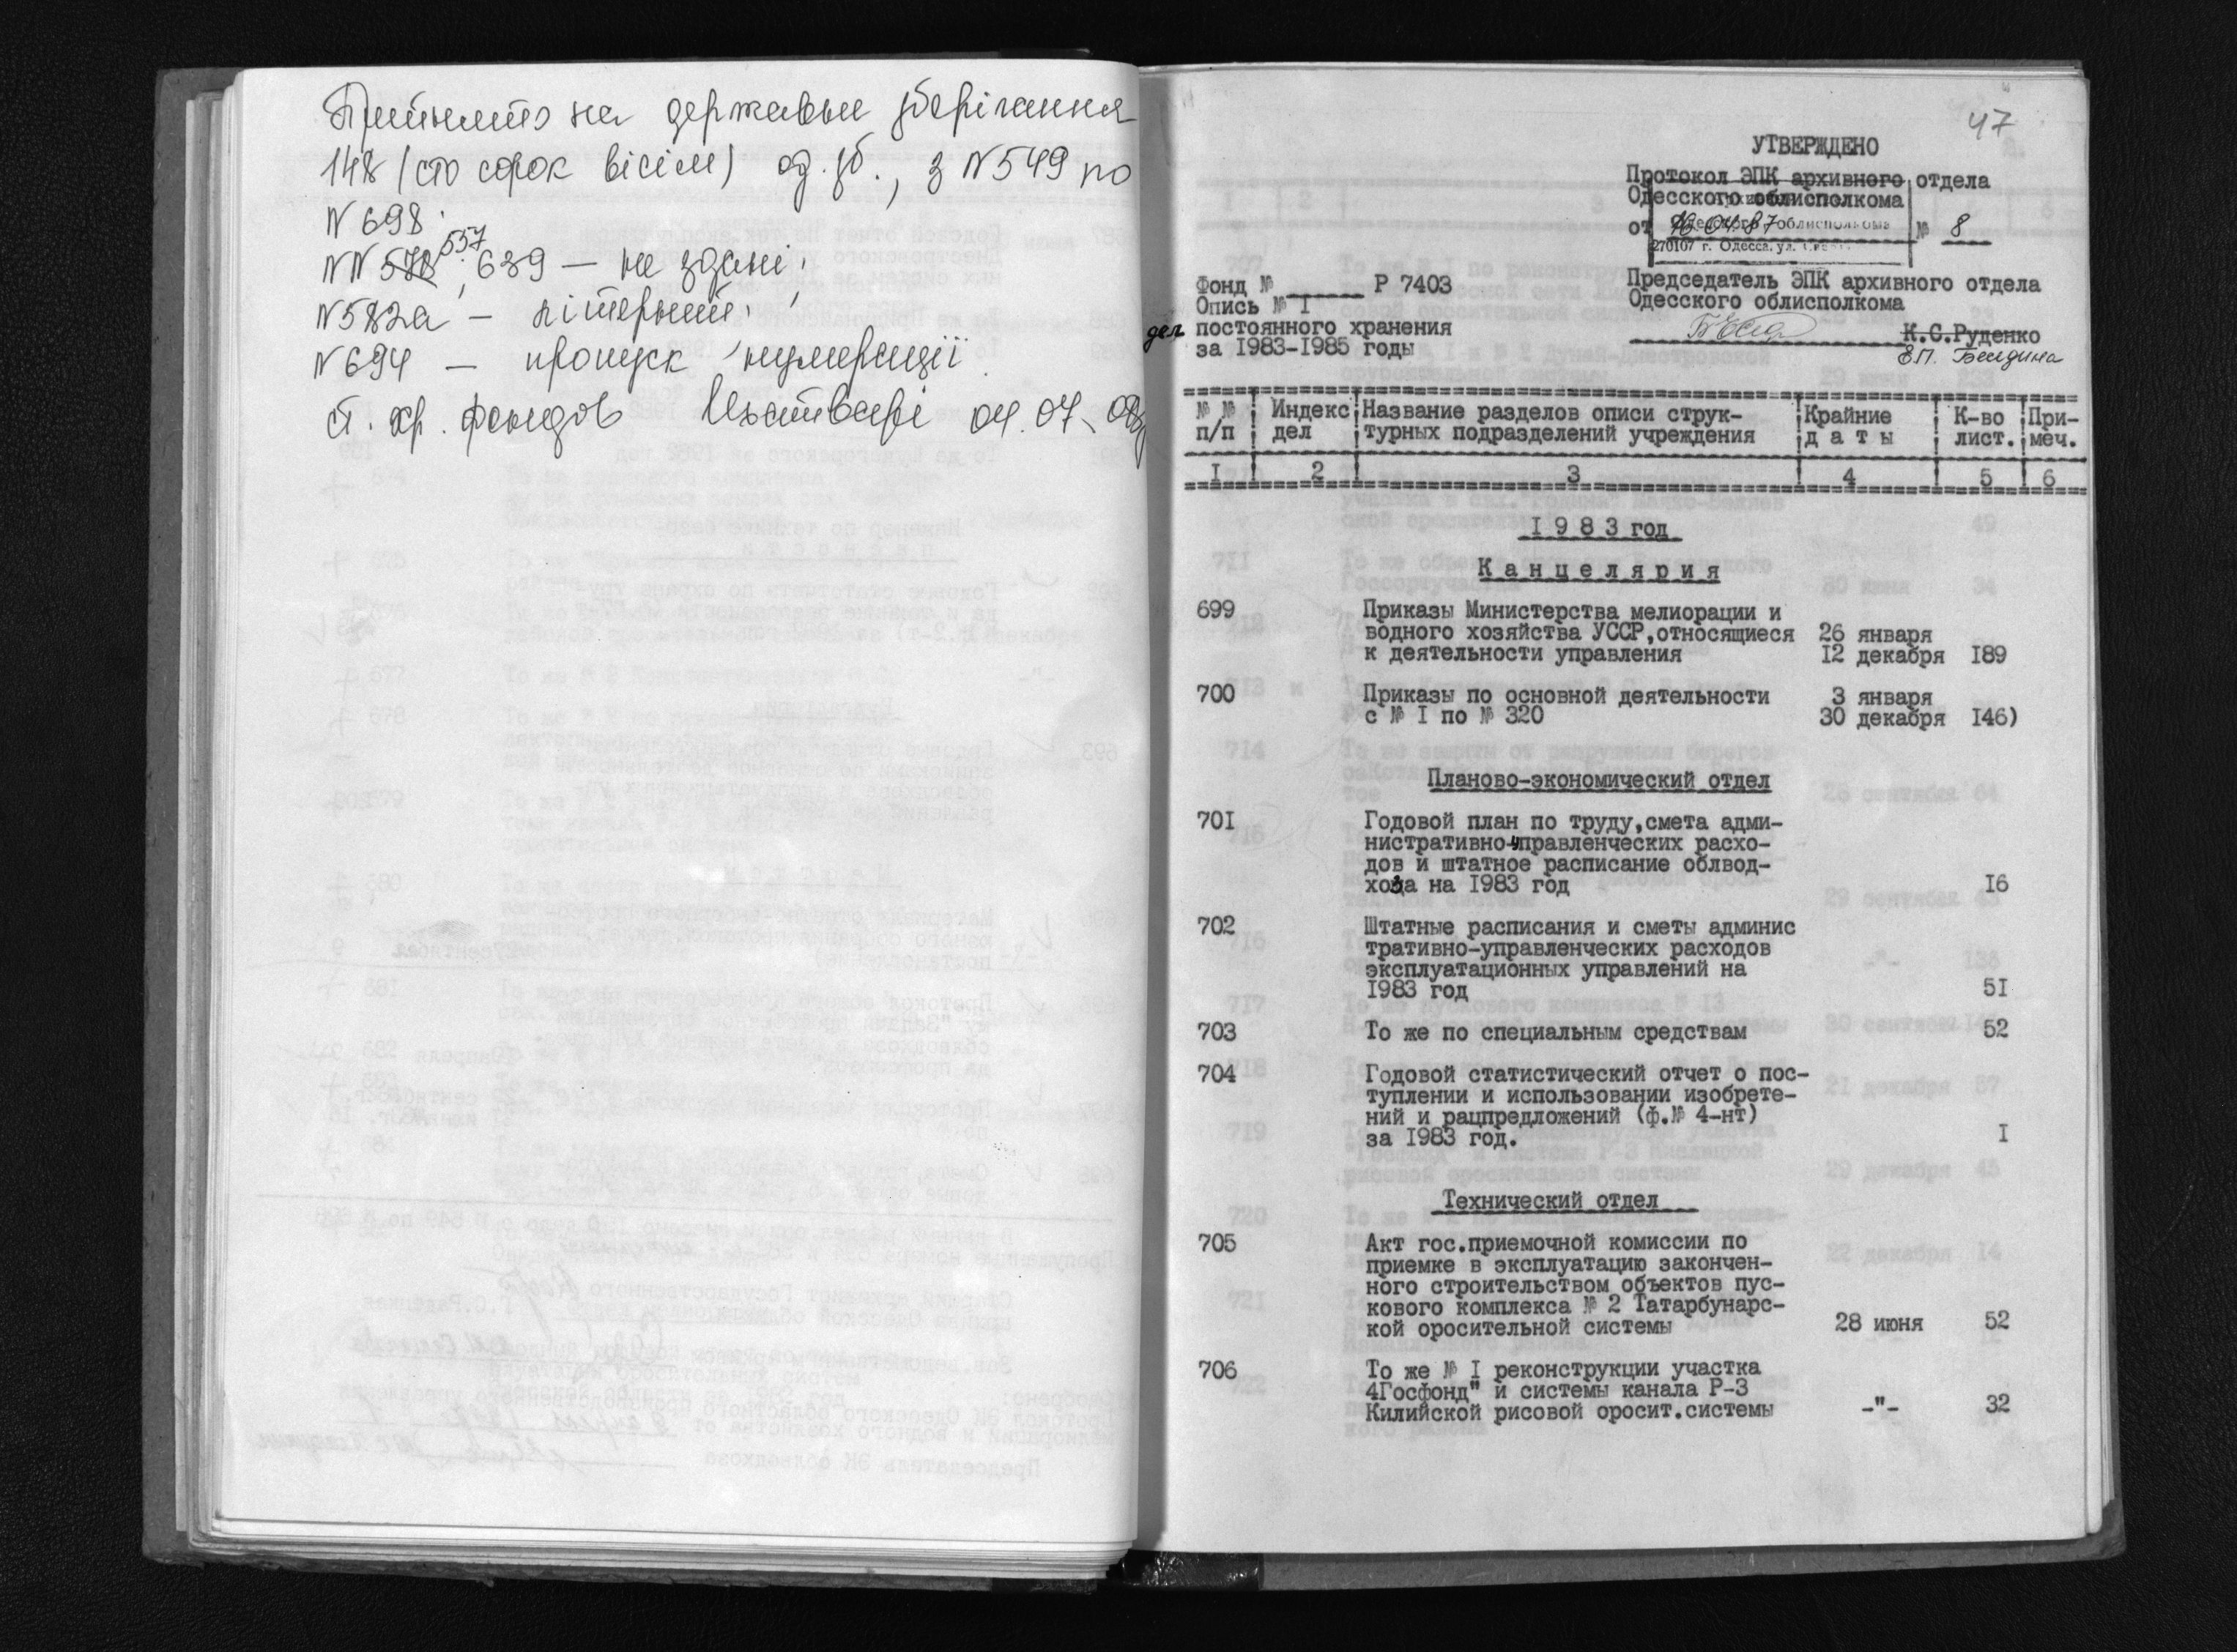 Прийнято на державне зберігання
148 (сто сорок вісім) од. зб., з N549 по
N 698.
NN 578 557, 639 — не здані;
N582а — літерний;
N694 — пропуск нумерації.
Ст. хр. фондов 04.07.
47
УТВЕРЖДЕНО
Протокол ЭПК архивного отдела
Одесского облисполкома
от 16.04.87 № 8
270107 г. Одесса, ул.
Фонд № Р 7403
Опись № I
дел постоянного хранения
за 1983-1985 годы
Председатель ЭПК архивного отдела
Одесского облисполкома
К.С.Руденко
Е.П. Беседина
№ № п/п
Индекс дел
Название разделов описи струк-
турных подразделений учреждения
Крайние даты
К-во лист.
При-
меч.
I 2 3 4 5 6
I 9 8 3 год
Канцелярия
699 Приказы Министерства мелиорации и
водного хозяйства УССР,относящиеся 26 января
к деятельности управления I2 декабря I89
700 Приказы по основной деятельности 3 января
с № I по № 320 30 декабря I46)
Планово-экономический отдел
70I Годовой план по труду,смета адми-
нистративно-управленческих расхо-
дов и штатное расписание облвод-
хоза на I983 год I6
702 Штатные расписания и сметы админис
тративно-управленческих расходов
эксплуатационных управлений на
I983 год 5I
703 То же по специальным средствам 52
704 Годовой статистический отчет о пос-
туплении и использовании изобрете-
ний и рацпредложений (ф.№ 4-нт)
за I983 год. I
Технический отдел
705 Акт гос.приемочной комиссии по
приемке в эксплуатацию закончен-
ного строительством объектов пус-
кового комплекса № 2 Татарбунарс-
кой оросительной системы 28 июня 52
706 То же № I реконструкции участка
4Госфонд" и системы канала Р-3
Килийской рисовой оросит.системы -"- 32